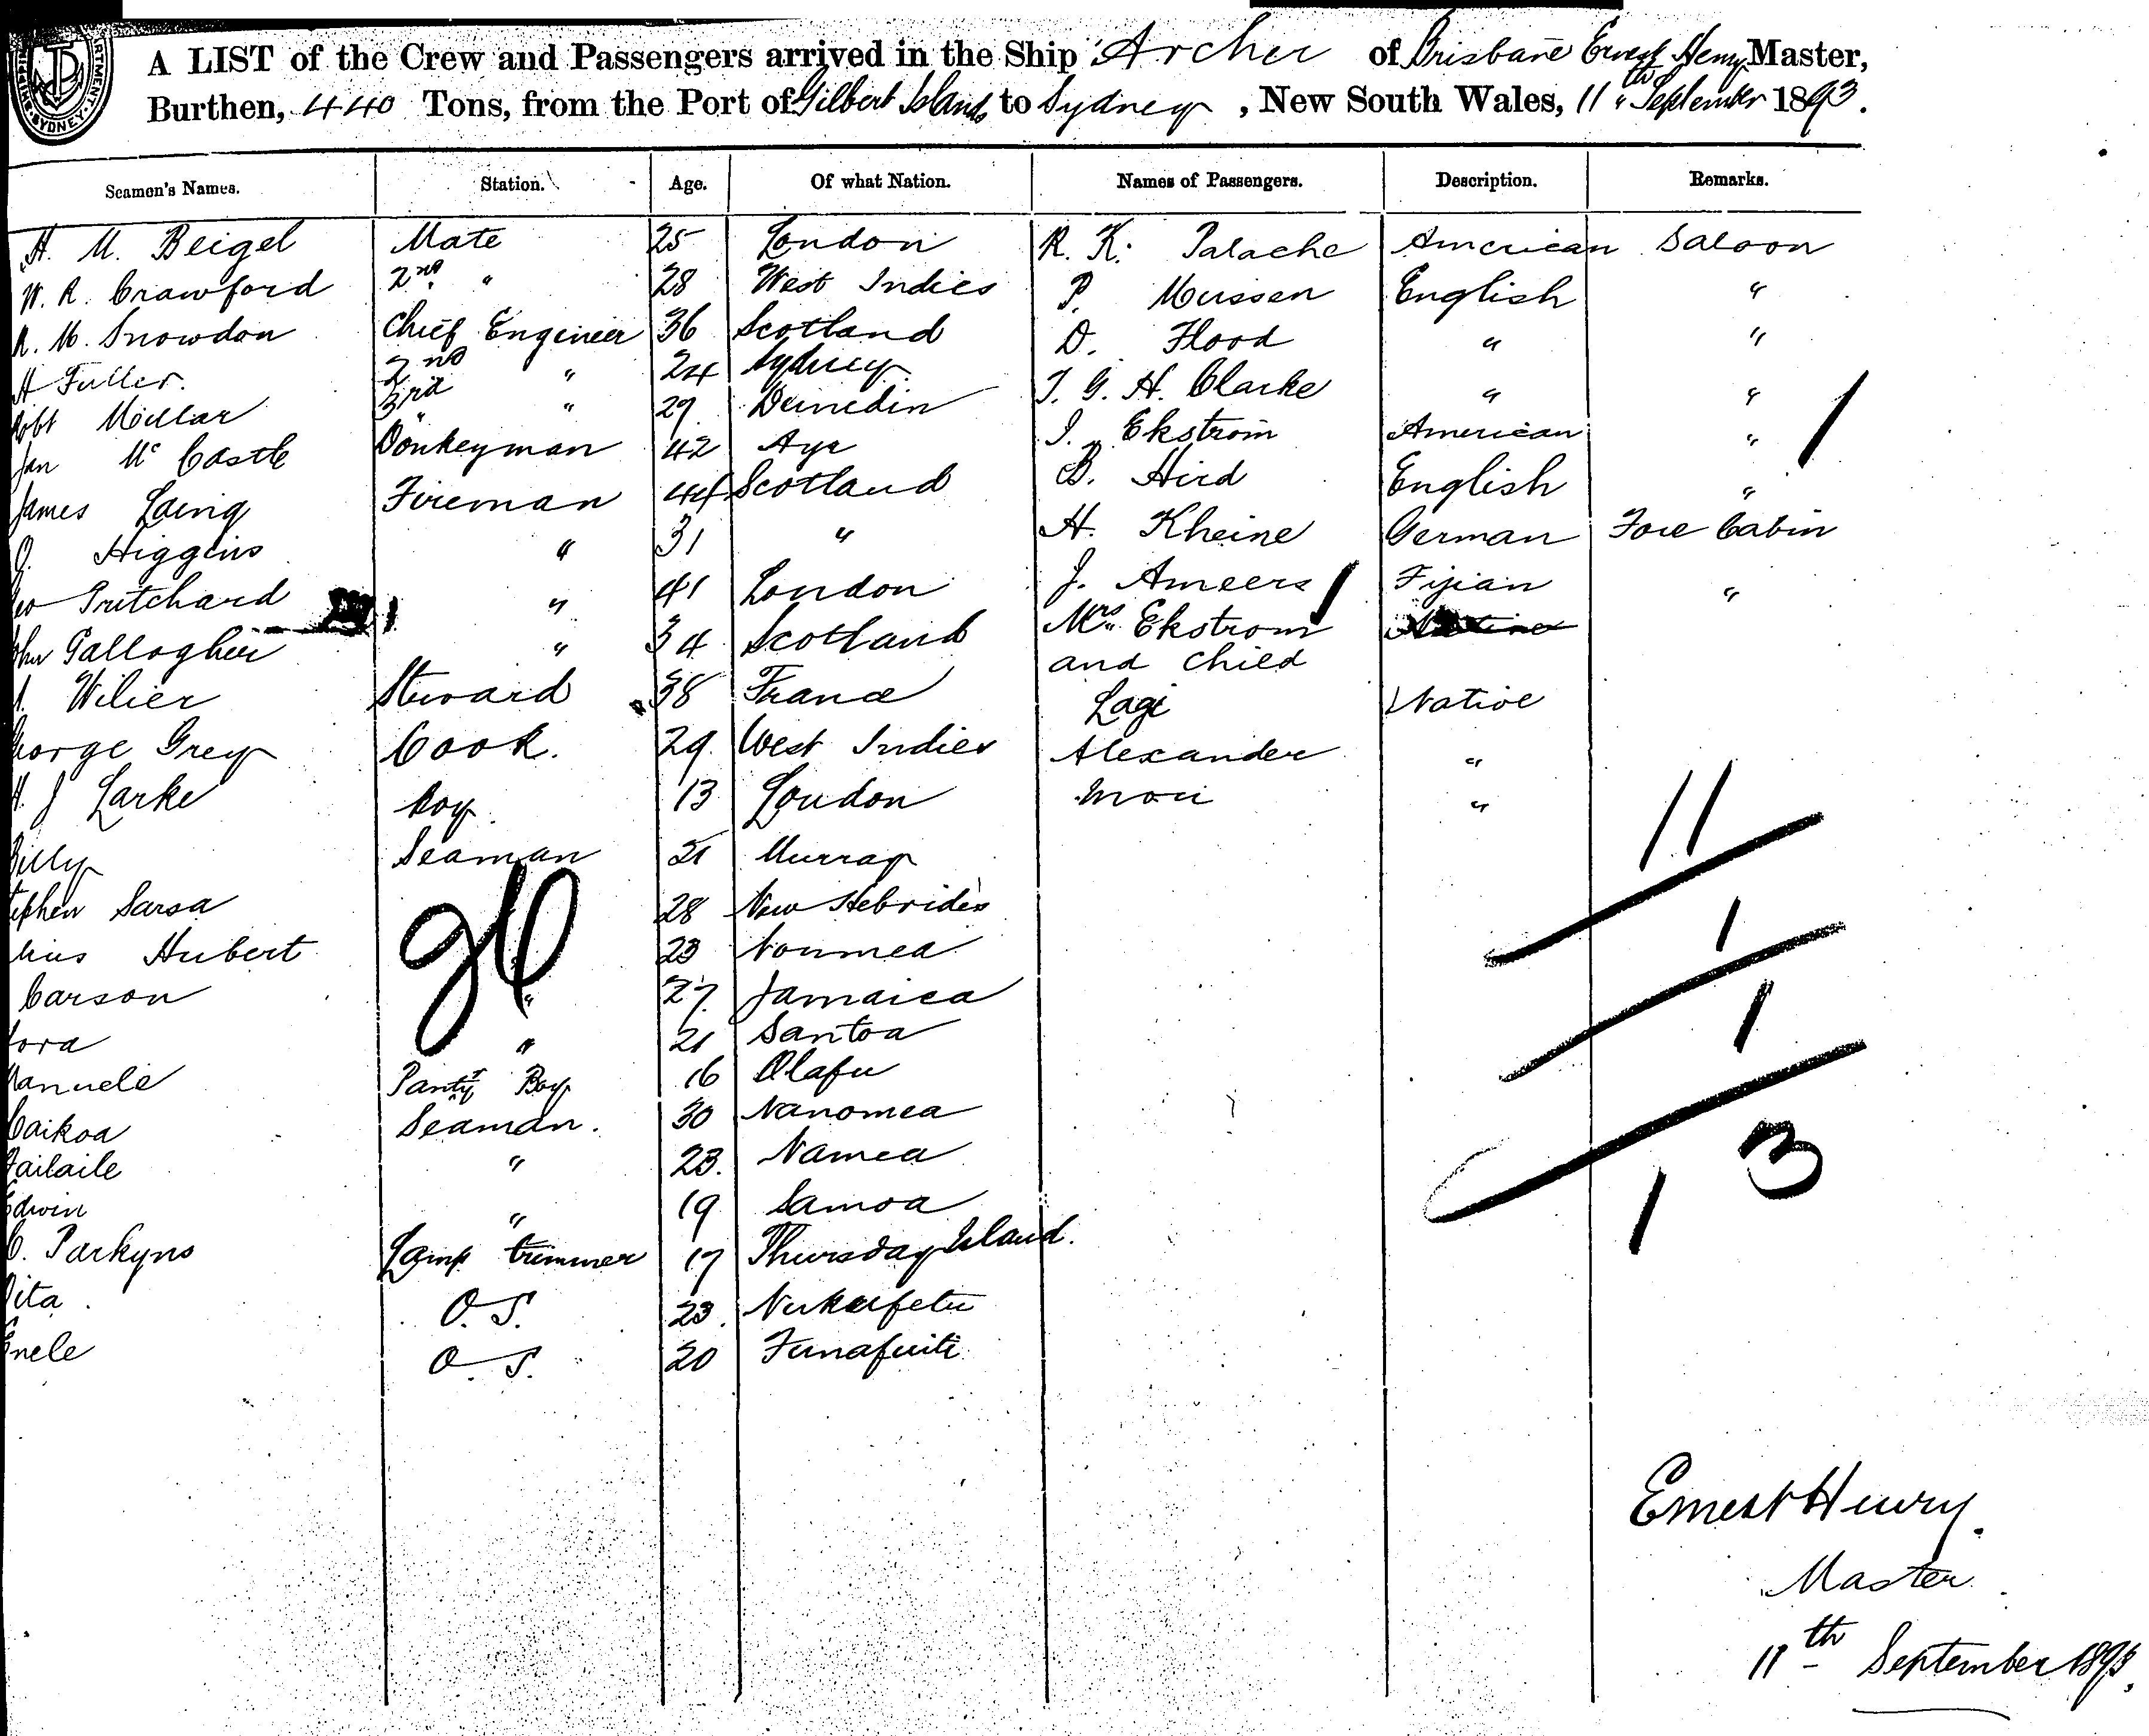 A LIST of the Crew and Passengers arrived in the Ship Archer of Brisbane Ernest Henry Master,
Burthen, 440 Tons, from the Port of Gilbert Islands to Sydney, New South Wales, 11th September 1893.
Seamen's Names. Station. Age. Of what Nation. Names of Passengers. Description. Remarks.
H. M. Beigel Mate 25 London R. K. Palache American Saloon
W. R. Crawford 2nd " 28 West Indies P. Mussen English "
R. M. Snowdon Chief Engineer 36 Scotland D. Flood " "
H Fuller. 2nd " 24 Sydney T. G. H. Clarke " "
Robt Millar 3rd " 29 Dunedin I. Ekstrom American "
Jan Mc Castle Donkeyman 42 Ayr B. Hird English "
James Laing Fireman 44 Scotland H. Kheine German Fore Cabin
J. Higgins " 31 " J. Ameers Fijian "
Geo Pritchard " 41 London Mrs Ekstrom
John Gallogher " 34 Scotland and Child
Wilier Steward 38 France Lagi Native
George Grey Cook. 29 West Indies Alexander "
H. J Larke Boy. 13 London Mou "
Billy Seaman 21 Murray
Stephen Sarsa 28 New Hebrides
Hubert 23 Noumea
Carson " 27. Jamaica
" 21 Santoa
Panty Boy 16 Olafu
Seaman. 30 Nanomea
" 23. Namea
Edwin " 19 Samoa
C. Parkyns Lamp trimmer 17 Thursday Island.
O. S. 23. Nukufetu
O. S. 20 Funafuiti
11
1
1
13
Ernest Henry.
Master
11th September 1893.